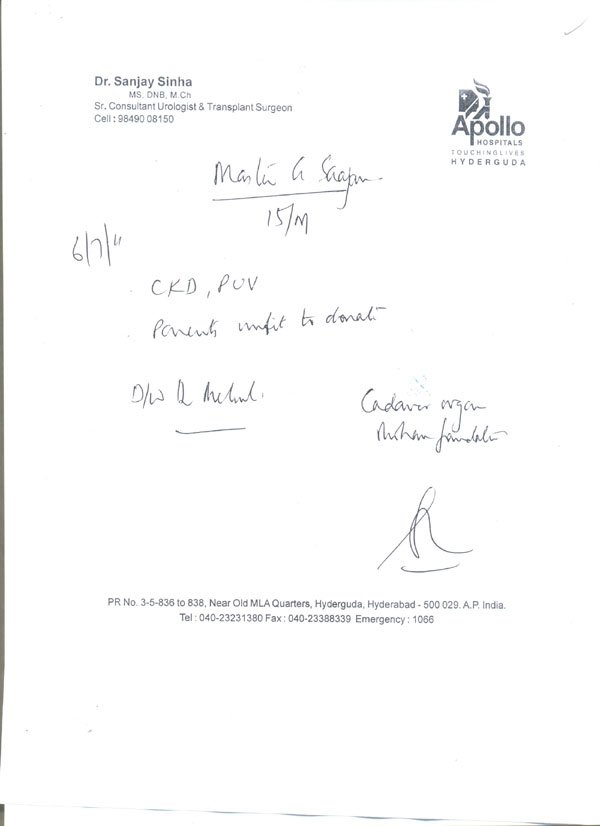 Dr. Sanjay Sinha
MS. DNB, M.Ch
Sr. Consultant Urologist & Transplant Surgeon
Cell : 98490 08150
Apollo
HOSPITALS
TOUCHING LIVES
HYDERGUDA
Master G
15/M
6/7/11
CKD, PUV
Parents unfit to donate
D/w Dr
Cadaver organ
Mohan foundation
PR No. 3-5-836 to 838, Near Old MLA Quarters, Hyderguda, Hyderabad - 500 029. A.P. India.
Tel : 040-23231380 Fax : 040-23388339 Emergency : 1066